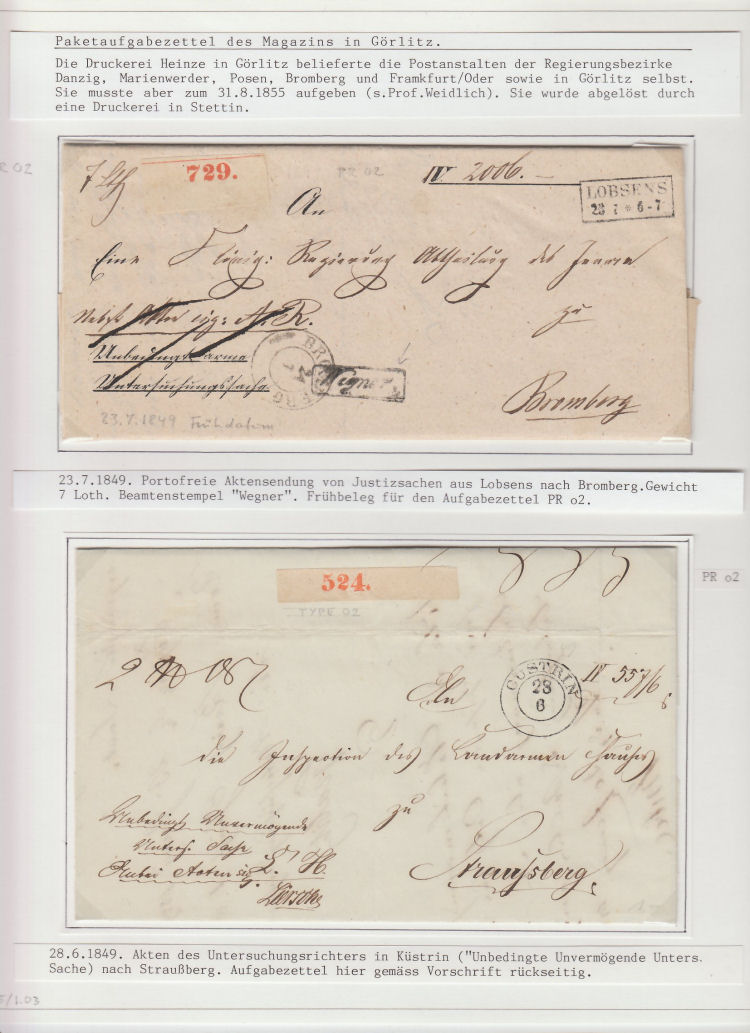 Paketaufgabezettel des Magazins in Görlitz.
Die Druckerei Heinze in Görlitz belieferte die Postanstalten der Regierungsbezirke
Danzig, Marienwerder, Posen, Bromberg und Framkfurt/Oder sowie in Görlitz selbst.
Sie musste aber zum 31.8.1855 aufgeben (s.Prof.Weidlich). Sie wurde abgelöst durch
eine Druckerei in Stettin.
R 02
7 Lth
729.
PR 02
IV. 2006.
LOBSENS
23 7 * 6-7
An
Eine Königl: Regierung Abtheilung des Innern
zu
Nebst Akten sig: A. R.
Unbedingt arme
Untersuchungssache
BROMBERG
Wegner
Bromberg
23.7.1849 Frühdatum
23.7.1849. Portofreie Aktensendung von Justizsachen aus Lobsens nach Bromberg.Gewicht
7 Loth. Beamtenstempel "Wegner". Frühbeleg für den Aufgabezettel PR o2.
524.
TYPE 02
PR o2
CUSTRIN
28
6
IV 557/6
An
die Inspection des Landarmen Hauses
zu
Unbedingt Unvermögende
Unters. Sache
Straussberg
28.6.1849. Akten des Untersuchungsrichters in Küstrin ("Unbedingte Unvermögende Unters.
Sache) nach Straußberg. Aufgabezettel hier gemäss Vorschrift rückseitig.
/1.03